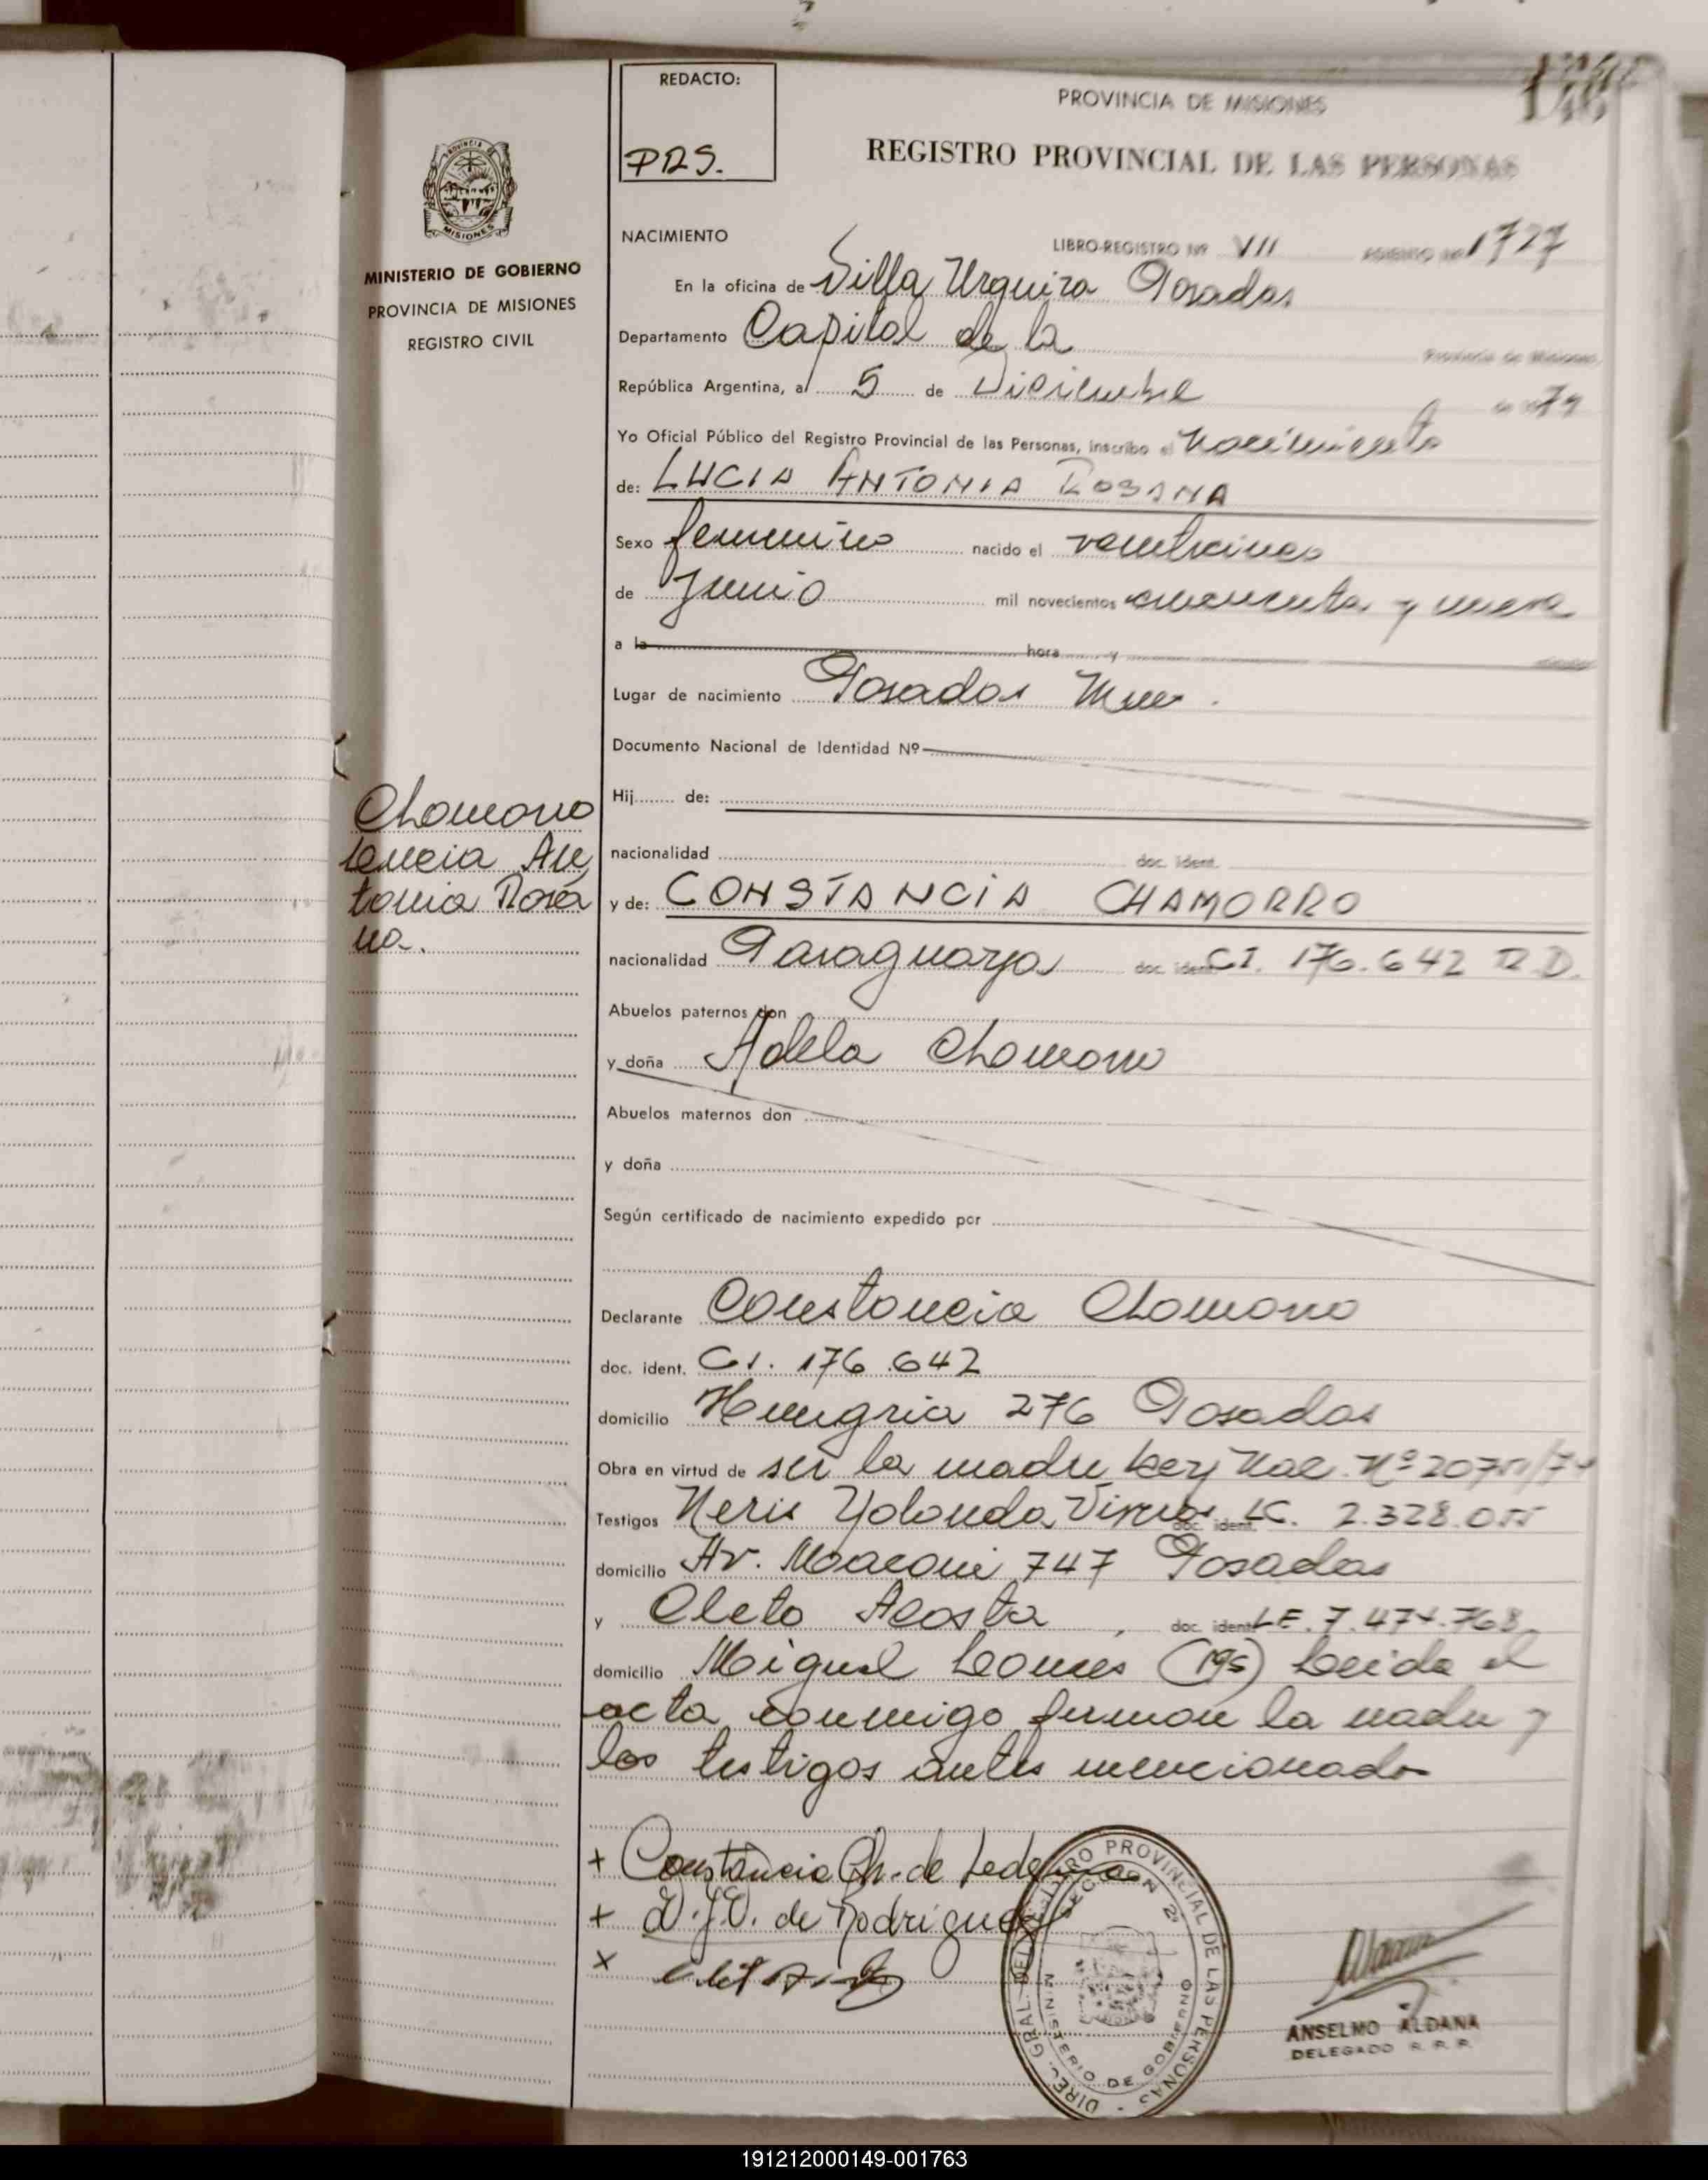 REDACTO:
PRS.
PROVINCIA DE MISIONES
REGISTRO PROVINCIAL DE LAS PERSONAS
MISIONES
MINISTERIO DE GOBIERNO
PROVINCIA DE MISIONES
REGISTRO CIVIL
NACIMIENTO
LIBRO-REGISTRO Nº VII ASIENTO Nº 1727
En la oficina de Villa Urquiza Posadas
Departamento Capital de la Provincia de Misiones,
República Argentina, a 5 de Diciembre de 1979
Yo Oficial Público del Registro Provincial de las Personas, inscribo el Nacimiento
de: LUCIA ANTONIA ROSANA
Sexo femenino nacido el veinticinco
de Junio mil novecientos cincuenta y nueve
a la hora y
Lugar de nacimiento Posadas Mnes.
Documento Nacional de Identidad Nº
Hij de:
nacionalidad doc. ident.
Chamorro
Lucia An
tonia Rosa
na.
y de: CONSTANCIA CHAMORRO
nacionalidad Paraguaya doc. ident. CI. 176.642 R.D.
Abuelos paternos don
y doña Adela Chamorro
Abuelos maternos don
y doña
Según certificado de nacimiento expedido por
Declarante Constancia Chamorro
doc. ident. CI. 176.642
domicilio Hungria 276 Posadas
Obra en virtud de ser la madre Ley Nac. Nº
Testigos Neris Yolanda doc. ident. LC. 2.328.055
domicilio Av. 747 Posadas
y Cleto Acosta, doc. ident. LE. 7.474.768
domicilio Miguel Lanus (195) Leida el
acta conmigo firman la madre y
los testigos antes mencionados
+ Constancia Ch. de
+ de Rodriguez
x
DIREC. GRAL. DEL REGISTRO PROVINCIAL DE LAS PERSONAS
SECCION 2ª
MINISTERIO DE GOBIERNO
ANSELMO ALDANA
DELEGADO R. P. P.
191212000149-001763